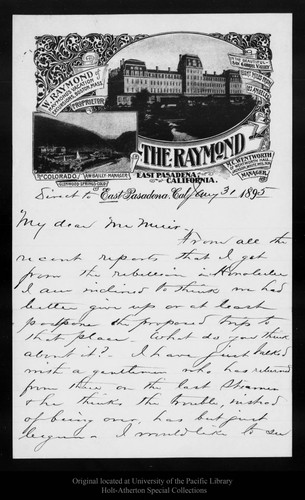 W. RAYMOND
PROPRIETOR
THE RAYMOND
EAST PASADENA,
CALIFORNIA.
MANAGER,
COLORADO,
GLENWOOD SPRINGS COLO.
East Pasadena, Cal, 31 1895
My dear Mr Muir.
From all the
recent reports that I get
from the rebellion in Honolulu
I am inclined to think we had
better give up or at least
postpone the proposed trip to
that place. What do you think
about it? I have just talked
with a gentleman who has returned
from there on the last steamer
& he thinks the trouble, instead
of being over, has but just
begun. I would like to see
Original located at University of the Pacific Library
Holt-Atherton Special Collections